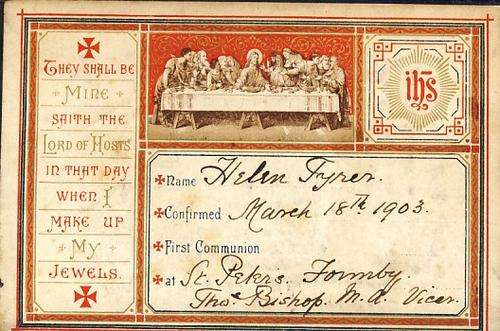 They shall be
Mine
saith the
Lord of Hosts
in that day
when I
make up
My
Jewels.
ihs
Name Helen Tyrer.
Confirmed March 18th 1903.
First Communion
at St. Peters. Formby.
Thos Bishop. M.A. Vicar.